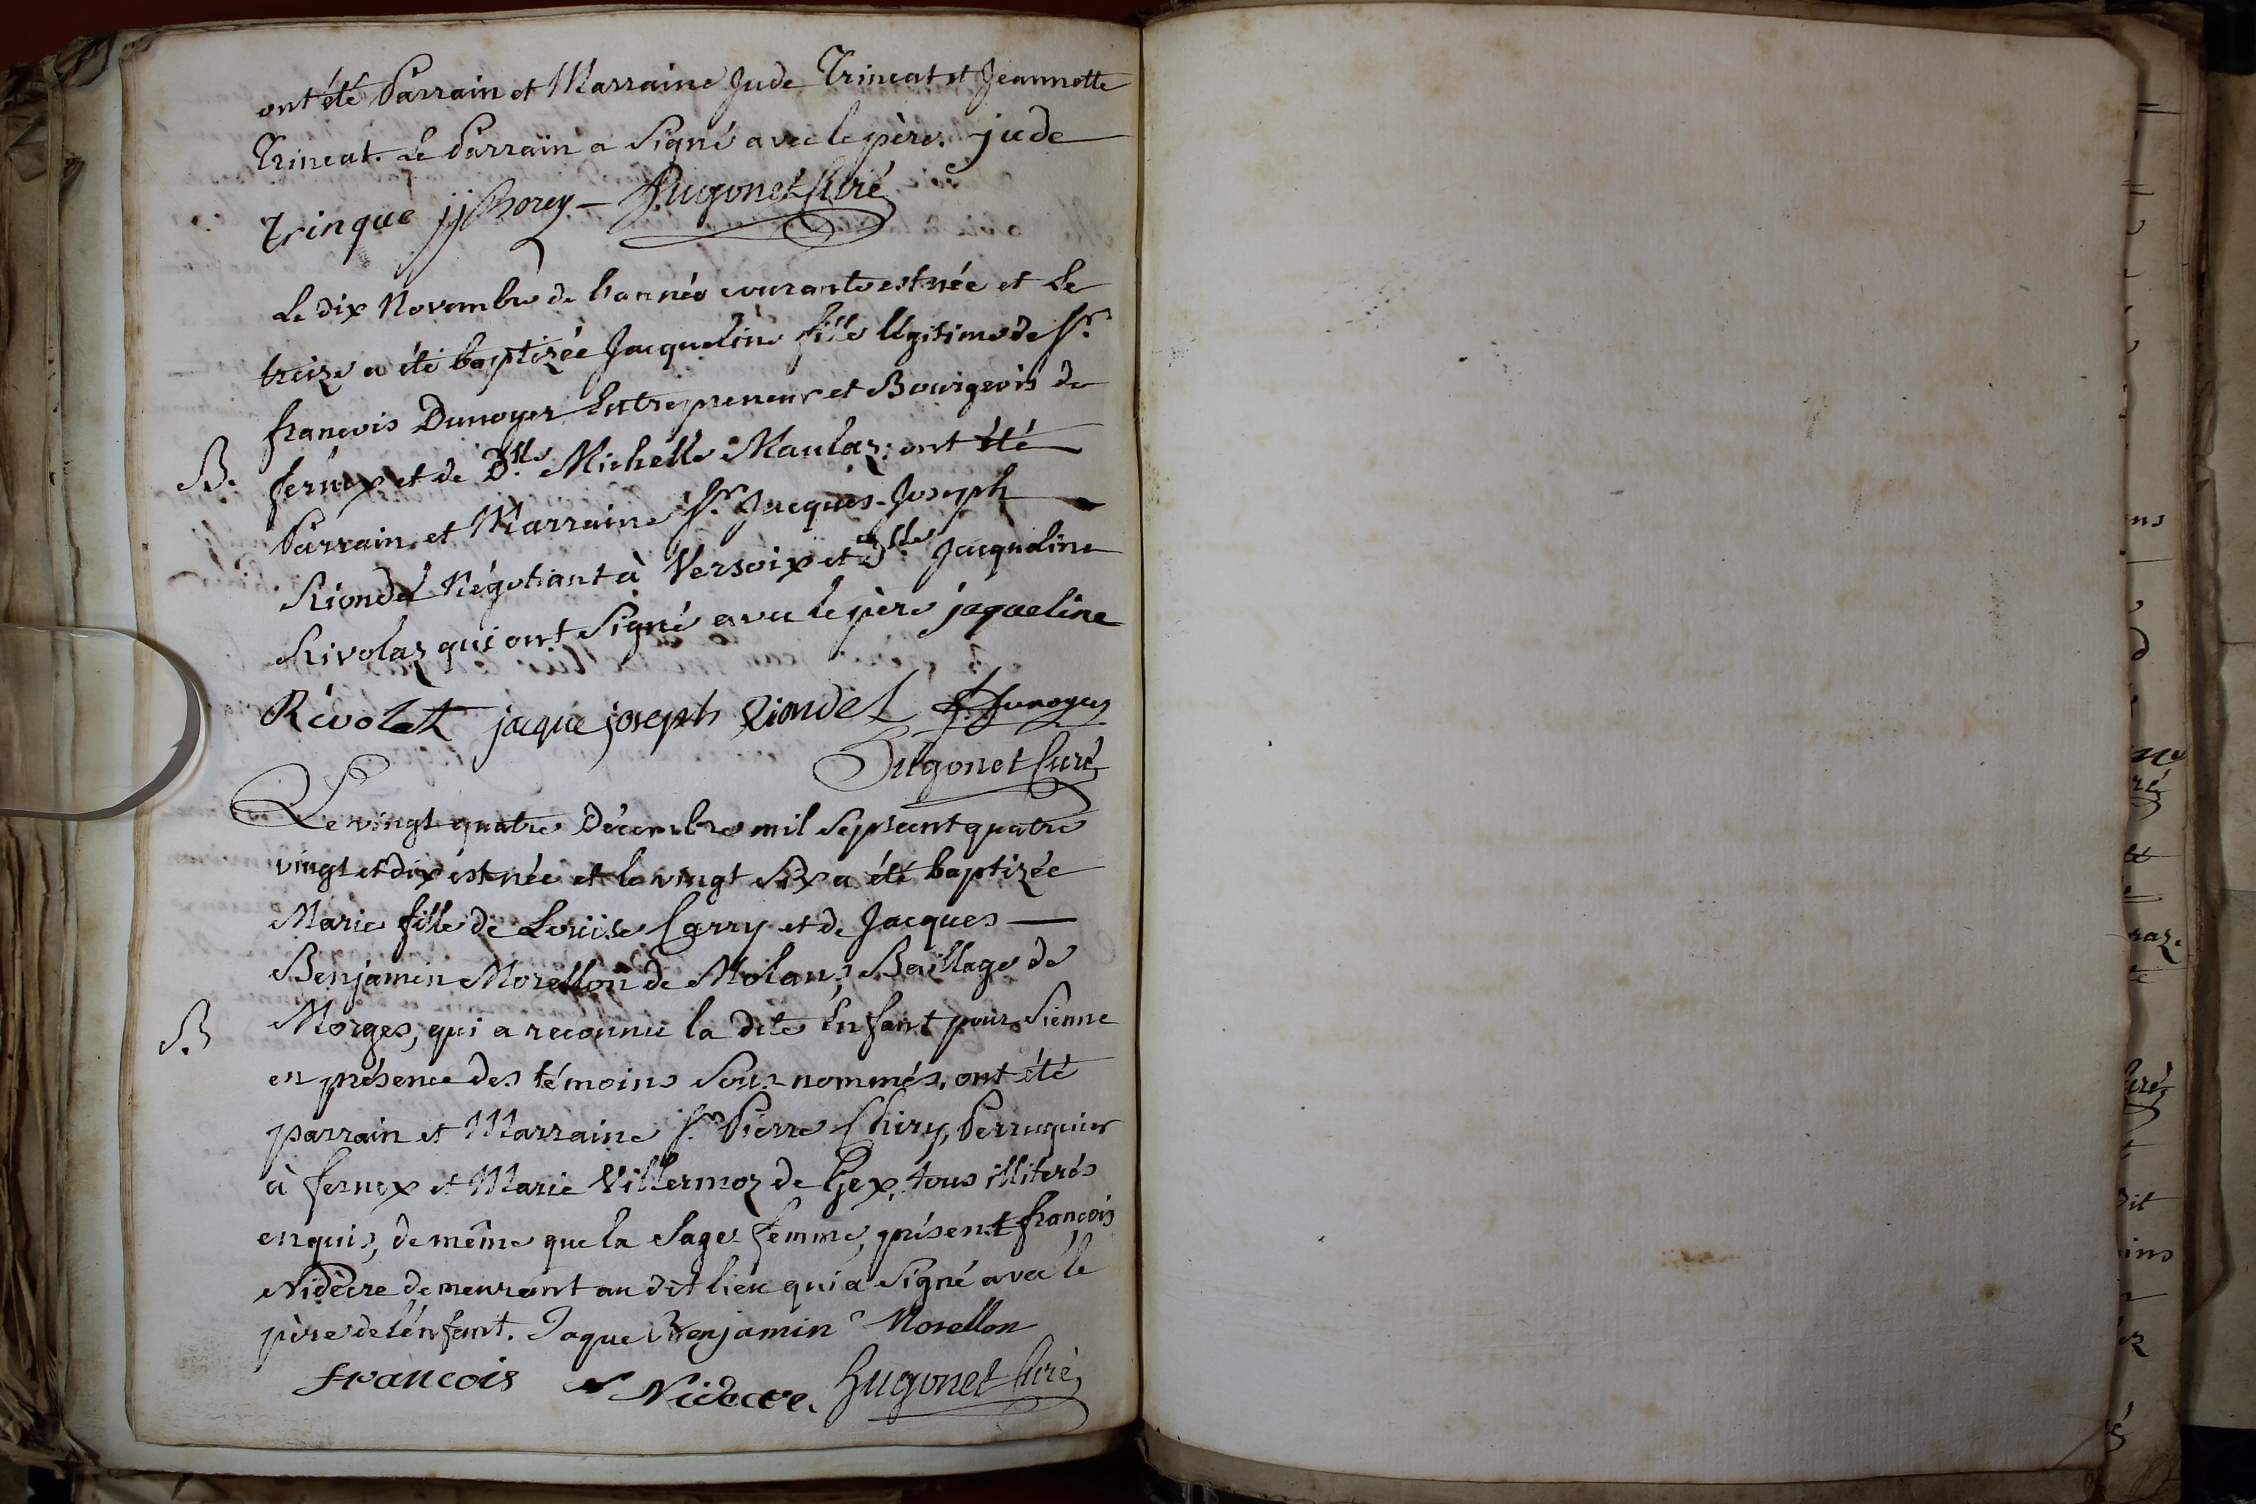 ont été Parrain et Marraine Jude Trincat et Jeannette
Trincat. Le Parrain a Signé avec le père. jude
trinque jj Borey — Hugonet Curé
Le dix Novembre de l'année courante est née et Le
treize a été baptizée Jacqueline fille légitime de Sr.
françois Dunoyer Entrepreneur et Bourgeois de
B. fernex et de Dlle. Michelle Maulaz; ont été
Parrain et Marraine Sr. Jacques-Joseph
Riondel Négotiant à Versoix et Dlle. Jacqueline
Rivolaz qui ont Signé avec le père jaqueline
Révolat jaque joseph Riondel f. Dunoyer
Hugonet Curé
Le vingt quatre Décembre mil Sept cent quatre
vingt et dix est née et le vingt Six a été baptizée
Marie fille de Louise Carry et de Jacques —
Benjamin Morellon de Molans, Baillage de
B Morges, qui a reconnu la dite Enfant pour Sienne
en présence des témoins Sous-nommés. ont été
parrain et Marraine Sr. Pierre Chiry, Perruquier
à fernex et Marie Villermoz de Gex, tous illiterés
enquis, de même que la Sage-femme, présent françois
Nidècre demeurant au dit lieu qui a Signé avec le
père de l'enfant. Jaque Benjamin Morellon
francois Nidecre. Hugonet Curé